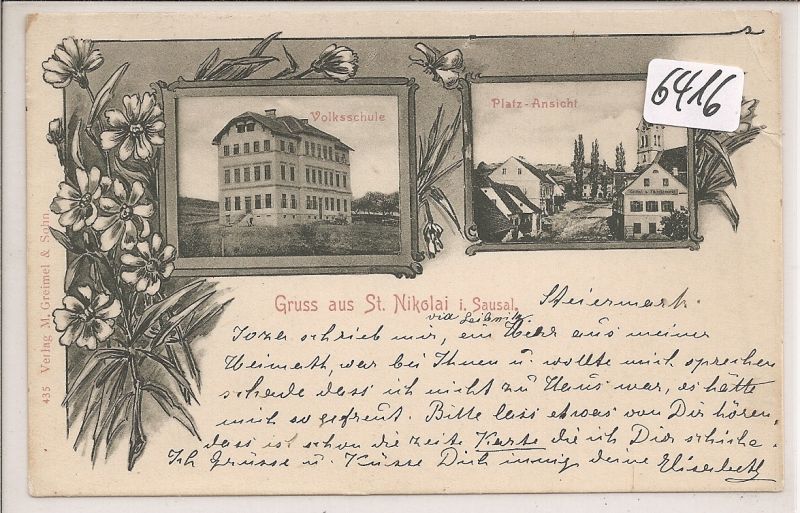 6416
Volksschule
Platz-Ansicht
435 Verlag M. Greimel & Sohn
Gruss aus St. Nikolai i. Sausal.
Steiermark.
via Leibnitz.
schrieb mir, ein Herr aus meiner
Heimath, war bei Ihnen u. wollte mich sprechen
schade dass ich nicht zu Haus war, es hätte
mich so gefreut. Bitte lass etwas von Dir hören,
dass ist schon die zeite Karte die ich Dir schicke.
Ich Grüsse u. Küsse Dich innig deine Elisabeth